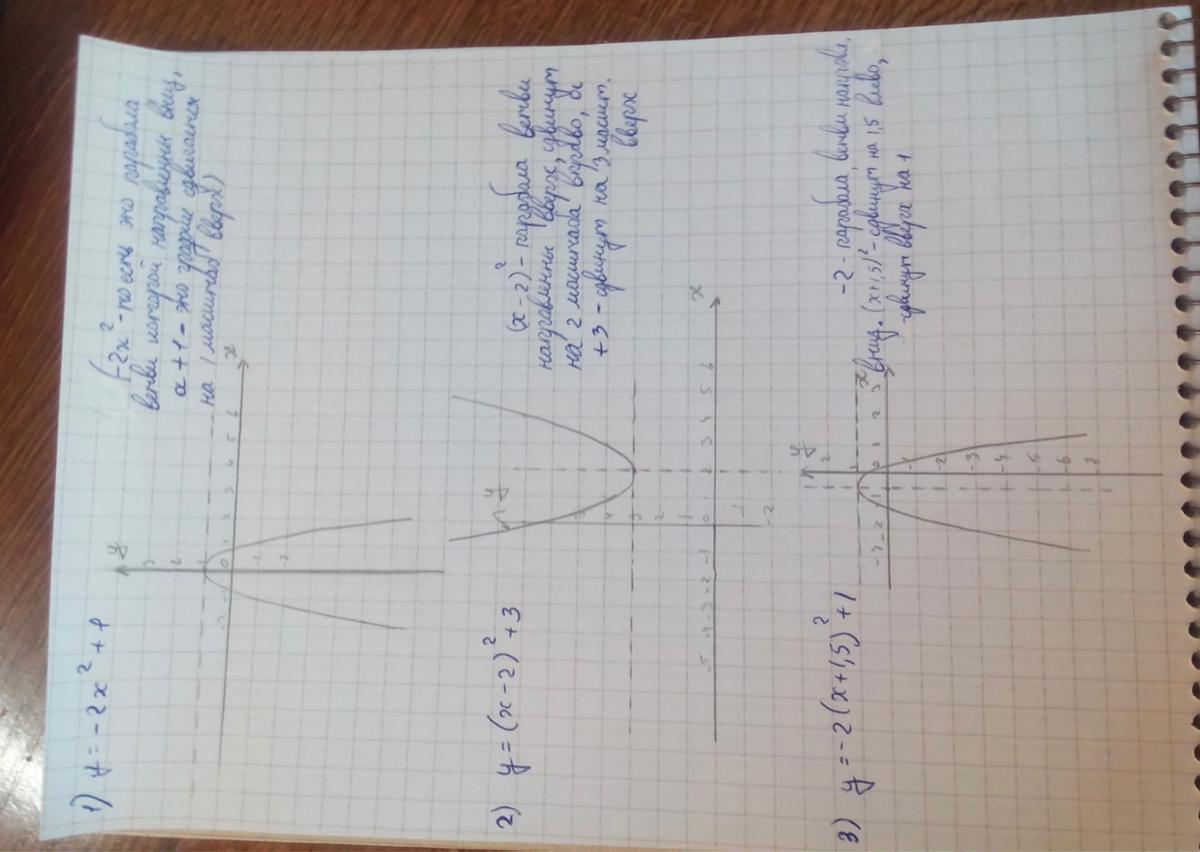 1) y = -2x² + 1
(-2x² - то есть это парабола
ветви которой направленны вниз,
а +1 - это график сдвигается
на 1 масштаб вверх)
y
3
2
1
0
-1
-2
1 2 3 4 5 6
x
2) y = (x-2)² + 3
(x-2)² - парабола ветви
направленны вверх, сдвинут
на 2 масштаба вправо, а
+3 - сдвинут на 3 масшт.
вверх
y
5
4
3
2
1
0
-1
-2
-5 -4 -3 -2 -1
1 2 3 4 5 6
x
3) y = -2(x+1,5)² + 1
-2 - парабола, ветви направл.
вниз. (x+1,5)² - сдвинут на 1,5 влево,
сдвинут вверх на 1
y
2
-3 -2 -1 0 1 2 3
x
-1
-2
-3
-4
-5
-6